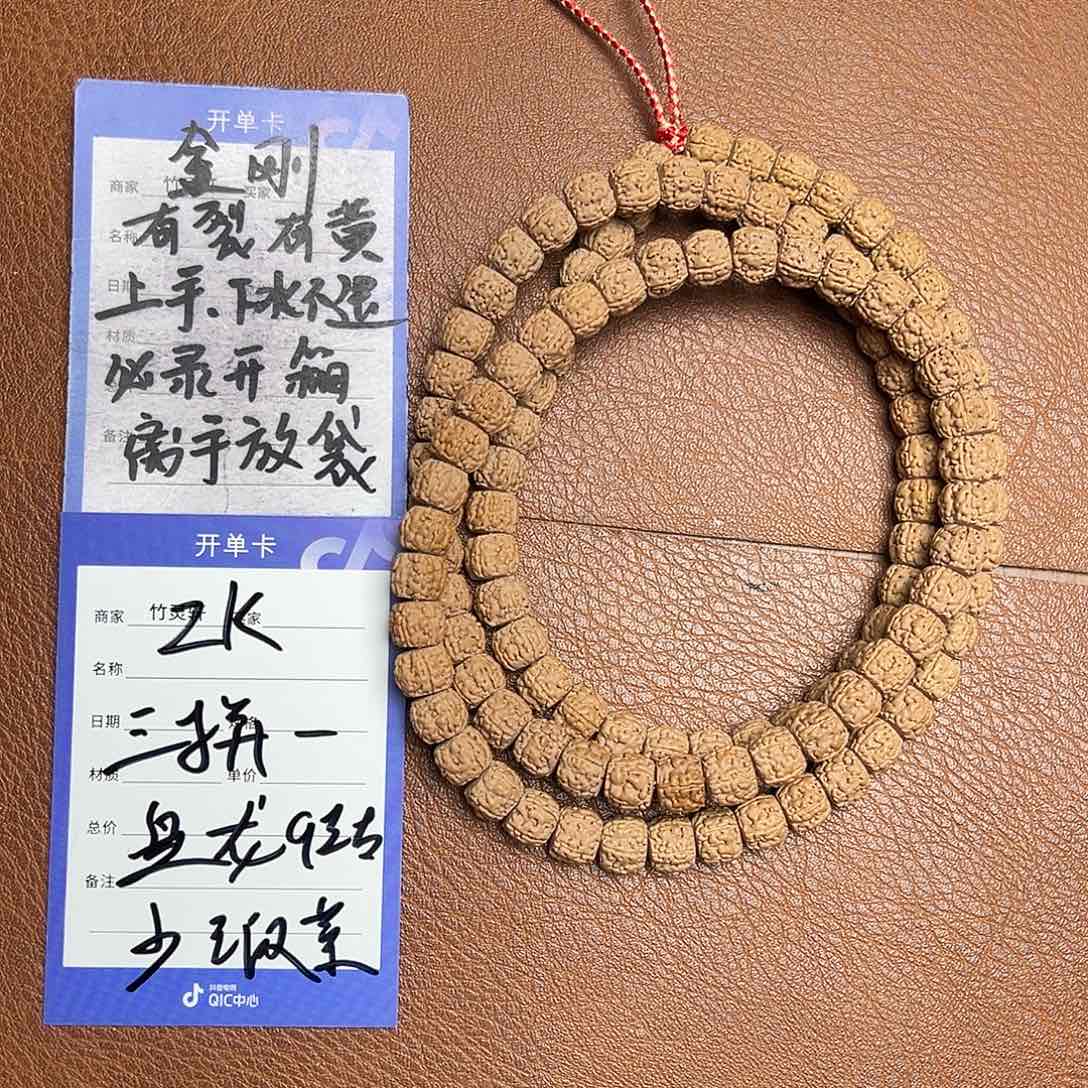 开单卡
金刚
商家 竹 买家
有裂有黄
名称
日期
上手、下水不退
材质
必录开箱
备注
离手放袋
开单卡
商家 竹灵轩 买家
ZK
名称
日期
三拼一
材质 单价
总价
盘龙
备注
少瑕
抖音电商
QIC中心